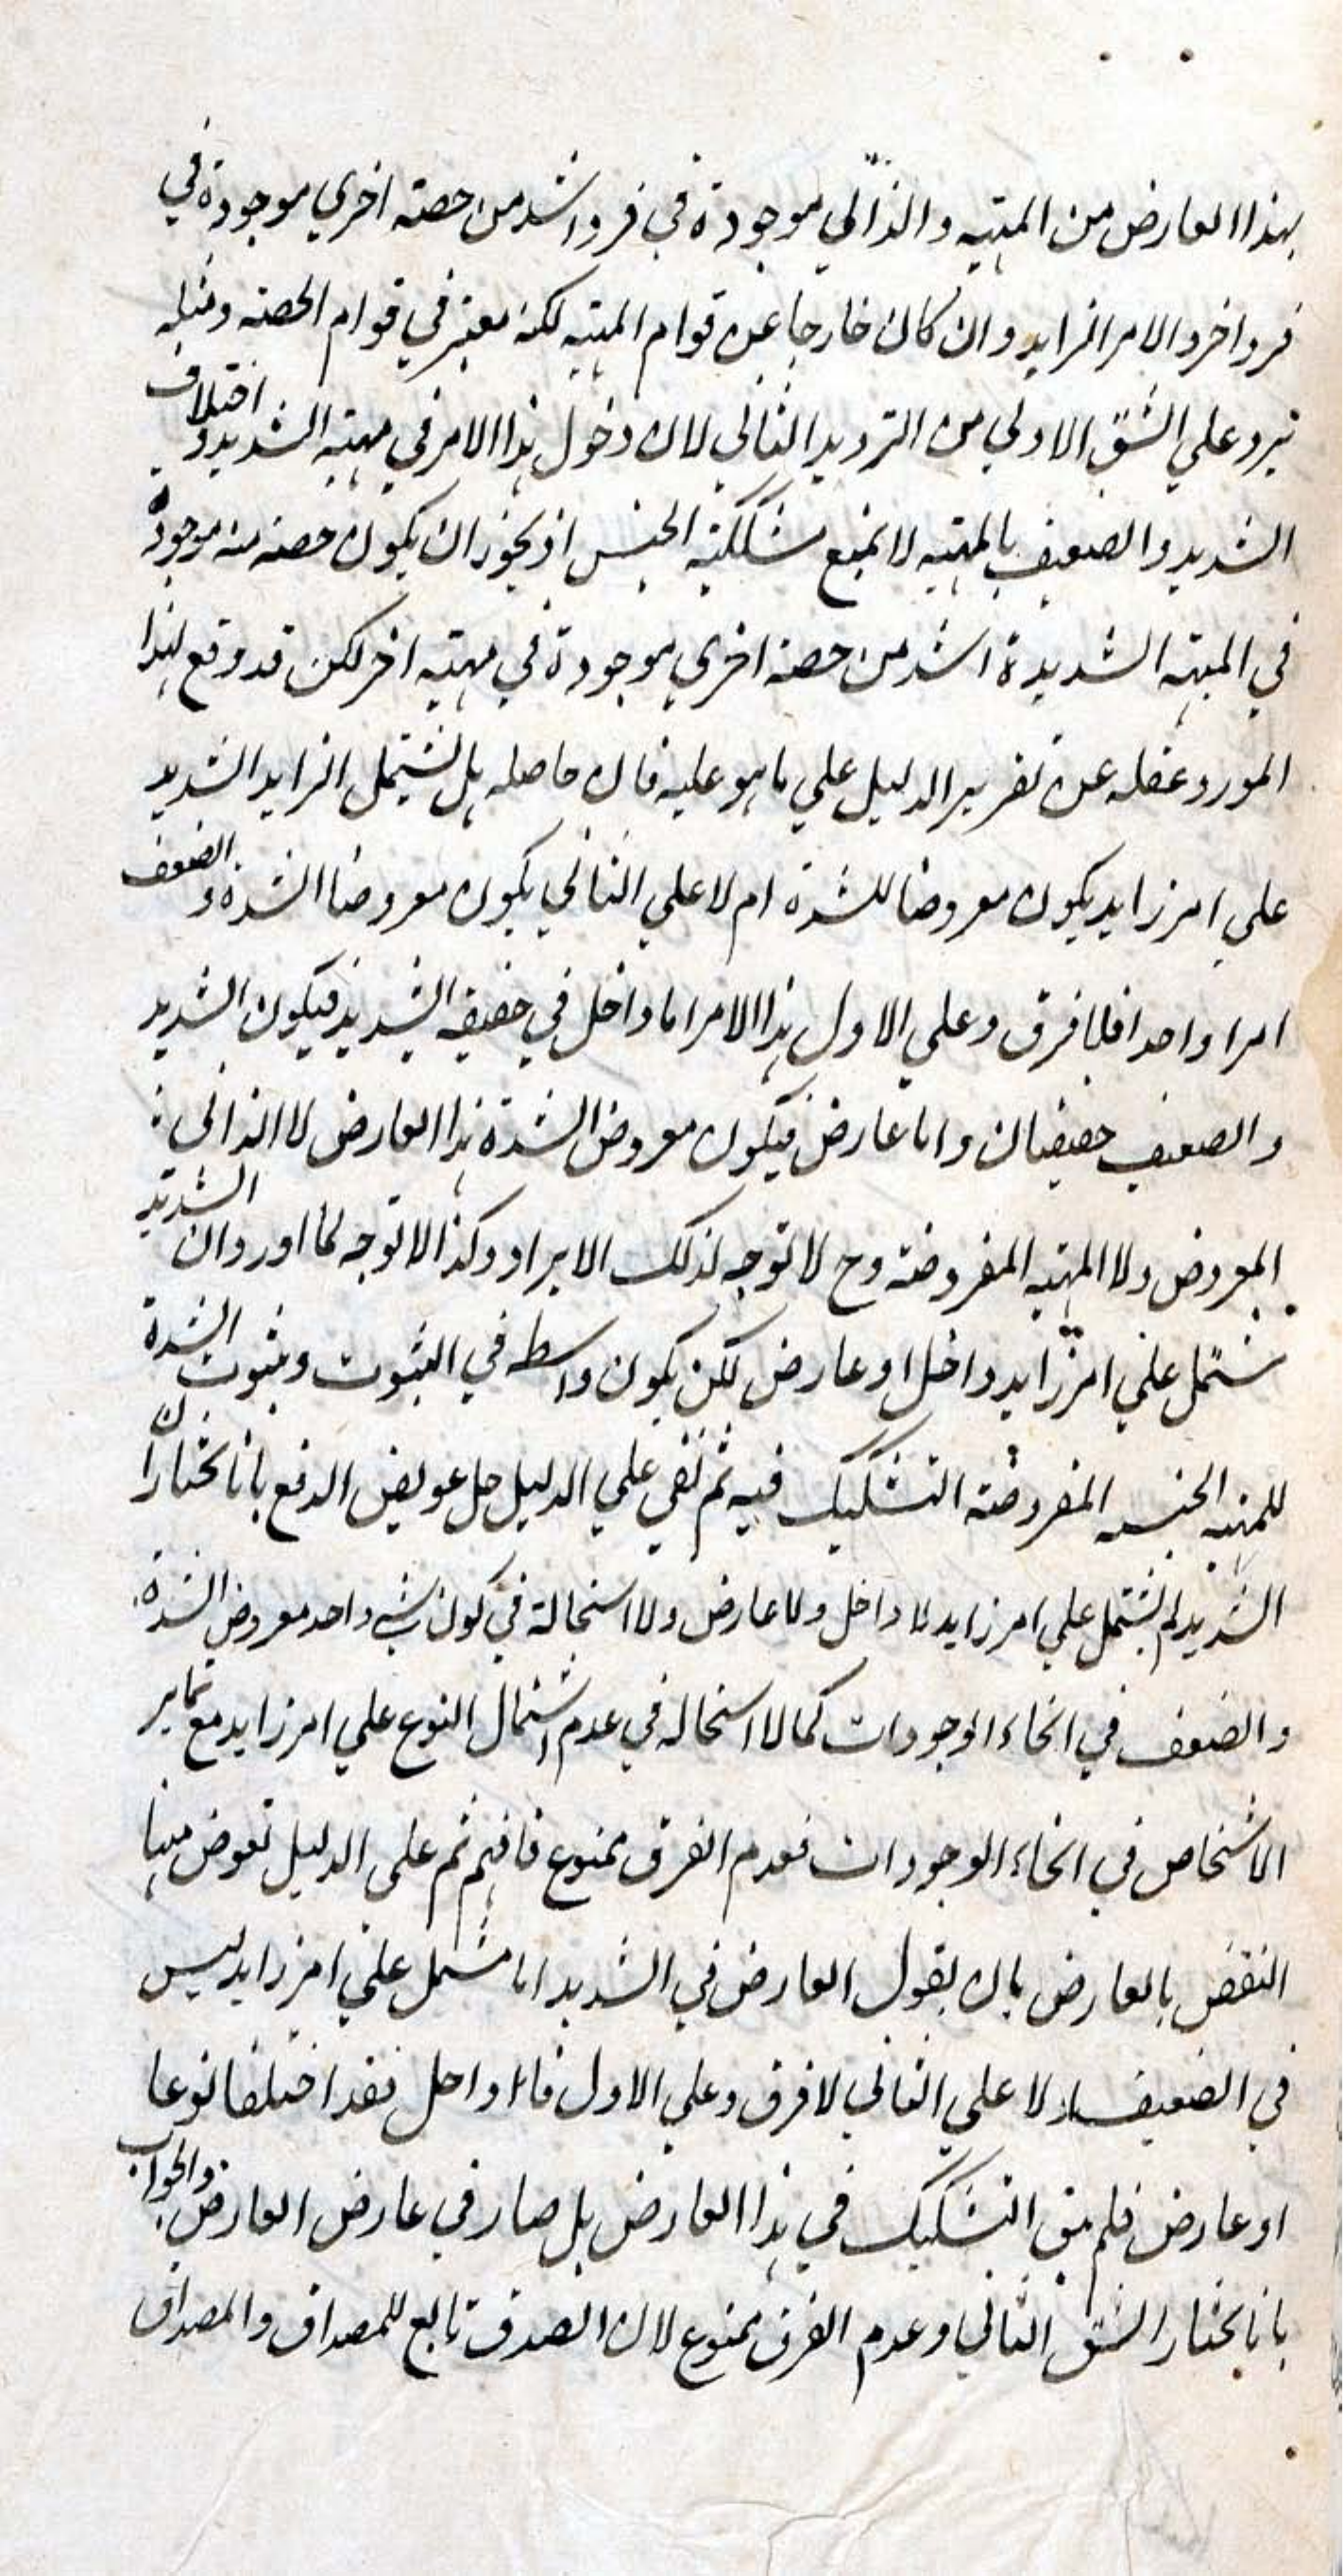 بهذا العارض من المهية والذاتي موجودة في فرد اشد من حصته اخري موجودة في
فرد اخر والامر الزايد وان كان خارجا عن قوام المهية لكنه معتبر في قوام الحصته ومثله
يرد علي الشق الاولي من الترديد الثاني لان دخول هذا الامر في مهية الشديد و اختلاف
الشديد والضعيف بالمهية لا يمنع مشككية الجنس اذ يجوز ان يكون حصته منه موجودة
في المهية الشديدة اشد من حصته اخري موجودة في مهية اخر لكن قد وقع لهذا
المورد غفلة عن تقرير الدليل علي ما هو عليه فان حاصله هل يشتمل الزايد الشديد
علي امر زايد يكون معروضا للشدة ام لا علي الثاني يكون معروضا الشدة و الضعف
امرا واحدا فلا فرق وعلي الاول هذا الامر اما داخل في حقيقة الشديد فيكون الشديد
والضعيف حقيقتان واما عارض فيكون معروض الشدة هذا العارض لا الذاتي
المعروض ولا المهية المفروضة وح لا توجه لذلك الايراد وكذا لا توجه لما اورد ان الشديد
يشتمل علي امر زايد داخل او عارض لكن يكون واسطه في الثبوت وثبوت الشدة
للمهية الجنسية المفروضة التشكيك فيه ثم بقي علي الدليل حل عويض الدفع بانا نختار ان
الشديد لم يشتمل علي امر زايد لا داخل ولا عارض ولا استحالة في كون شيء واحد معروض الشدة
والضعف في انحاء الوجودات كما لا استحاله في عدم اشتمال النوع علي امر زايد مع تمايز
الاشخاص في انحاء الوجودات فعدم الفرق ممنوع فافهم ثم علي الدليل نقوض منها
النقض بالعارض بان يقول العارض في الشديد اما مشتمل علي امر زايد ليس
في الضعيف اولا علي الثاني لا فرق وعلي الاول فاما داخل فقد اختلفا نوعا
او عارض فلم يبق التشكيك في هذا العارض بل صار في عارض العارض والجواب
بانا نختار الشق الثاني وعدم الفرق ممنوع لان الصدق تابع للمصداق والمصداق